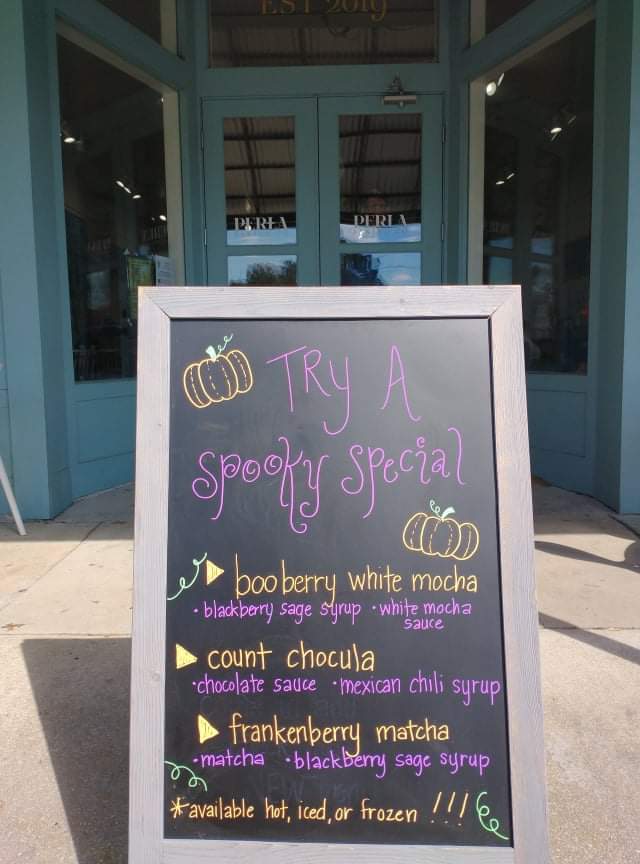 EST 2019
PERLA PERLA
TRY A
spooky special
boo berry white mocha
• blackberry sage syrup • white mocha
sauce
count chocula
• chocolate sauce • mexican chili syrup
frankenberry matcha
• matcha • blackberry sage syrup
* available hot, iced, or frozen !!!